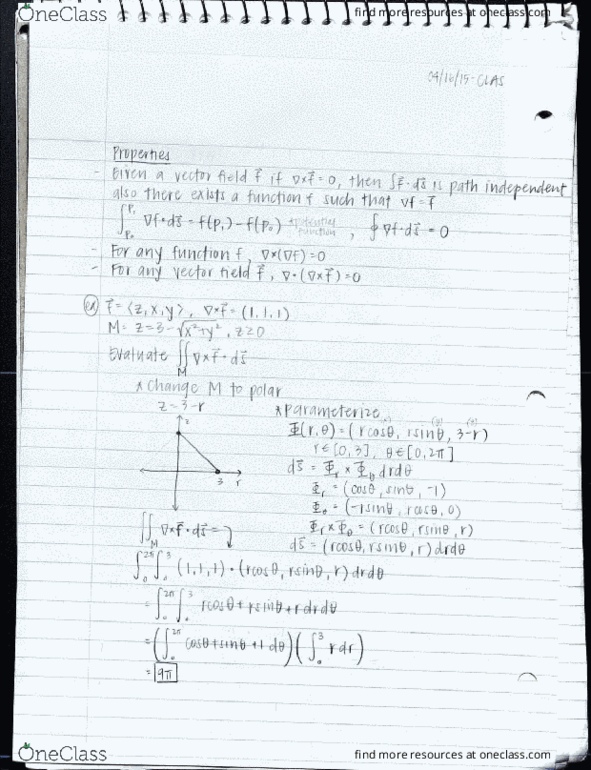 OneClass
find more resources at oneclass.com
04/16/15-CLAS
Properties
- Given a vector field F⃗ if ∇×F⃗=0, then ∫F⃗·ds⃗ is path independent
also there exists a function f such that ∇f=F⃗
∫_{P₀}^{P₁} ∇f·ds⃗ = f(P₁)-f(P₀) *potential function, ∮∇f·ds⃗ = 0
- For any function f, ∇×(∇f)=0
- For any vector field F⃗, ∇·(∇×F⃗)=0
ex) F⃗=⟨z,x,y⟩, ∇×F⃗=(1,1,1)
M= z=3-√x²+y², z≥0
Evaluate ∬_M ∇×F⃗·ds⃗
*Change M to polar
z=3-r
z
3 r
*Parameterize
Φ(r,θ)=(rcosθ, rsinθ, 3-r)
r∈[0,3], θ∈[0,2π]
ds⃗ = Φ_r × Φ_θ drdθ
Φ_r = (cosθ, sinθ, -1)
Φ_θ = (-rsinθ, rcosθ, 0)
Φ_r×Φ_θ = (rcosθ, rsinθ, r)
ds⃗ = (rcosθ, rsinθ, r)drdθ
∬_M ∇×F⃗·ds⃗ =
∫₀^{2π}∫₀³ (1,1,1)·(rcosθ, rsinθ, r)drdθ
=∫₀^{2π}∫₀³ rcosθ+rsinθ+r drdθ
=(∫₀^{2π} cosθ+sinθ+1 dθ)(∫₀³ r dr)
= 9π
OneClass
find more resources at oneclass.com